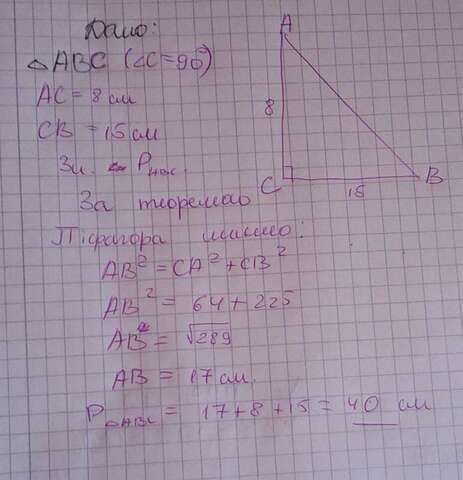 Дано:
△ABC (∠C=90°)
AC = 8 см
CB = 15 см
Зн.
За теоремою
Піфагора маємо:
AB² = CA² + CB²
AB² = 64 + 225
AB = √289
AB = 17 см.
P△ABC = 17 + 8 + 15 = 40 см
A
8
C
15
B